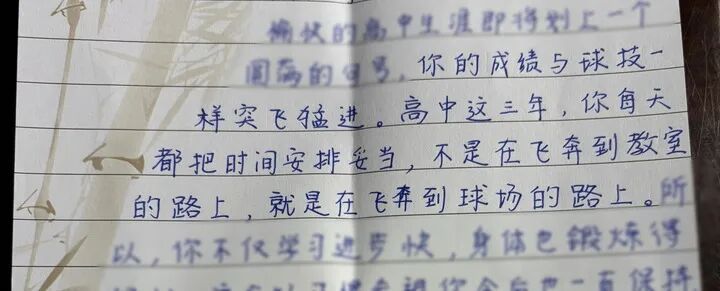 愉快的高中生涯即将划上一个
圆满的句号，你的成绩与球技一
样突飞猛进。高中这三年，你每天
都把时间安排妥当，不是在飞奔到教室
的路上，就是在飞奔到球场的路上。所
以，你不仅学习进步快，身体也锻炼得
你今后也一直保持